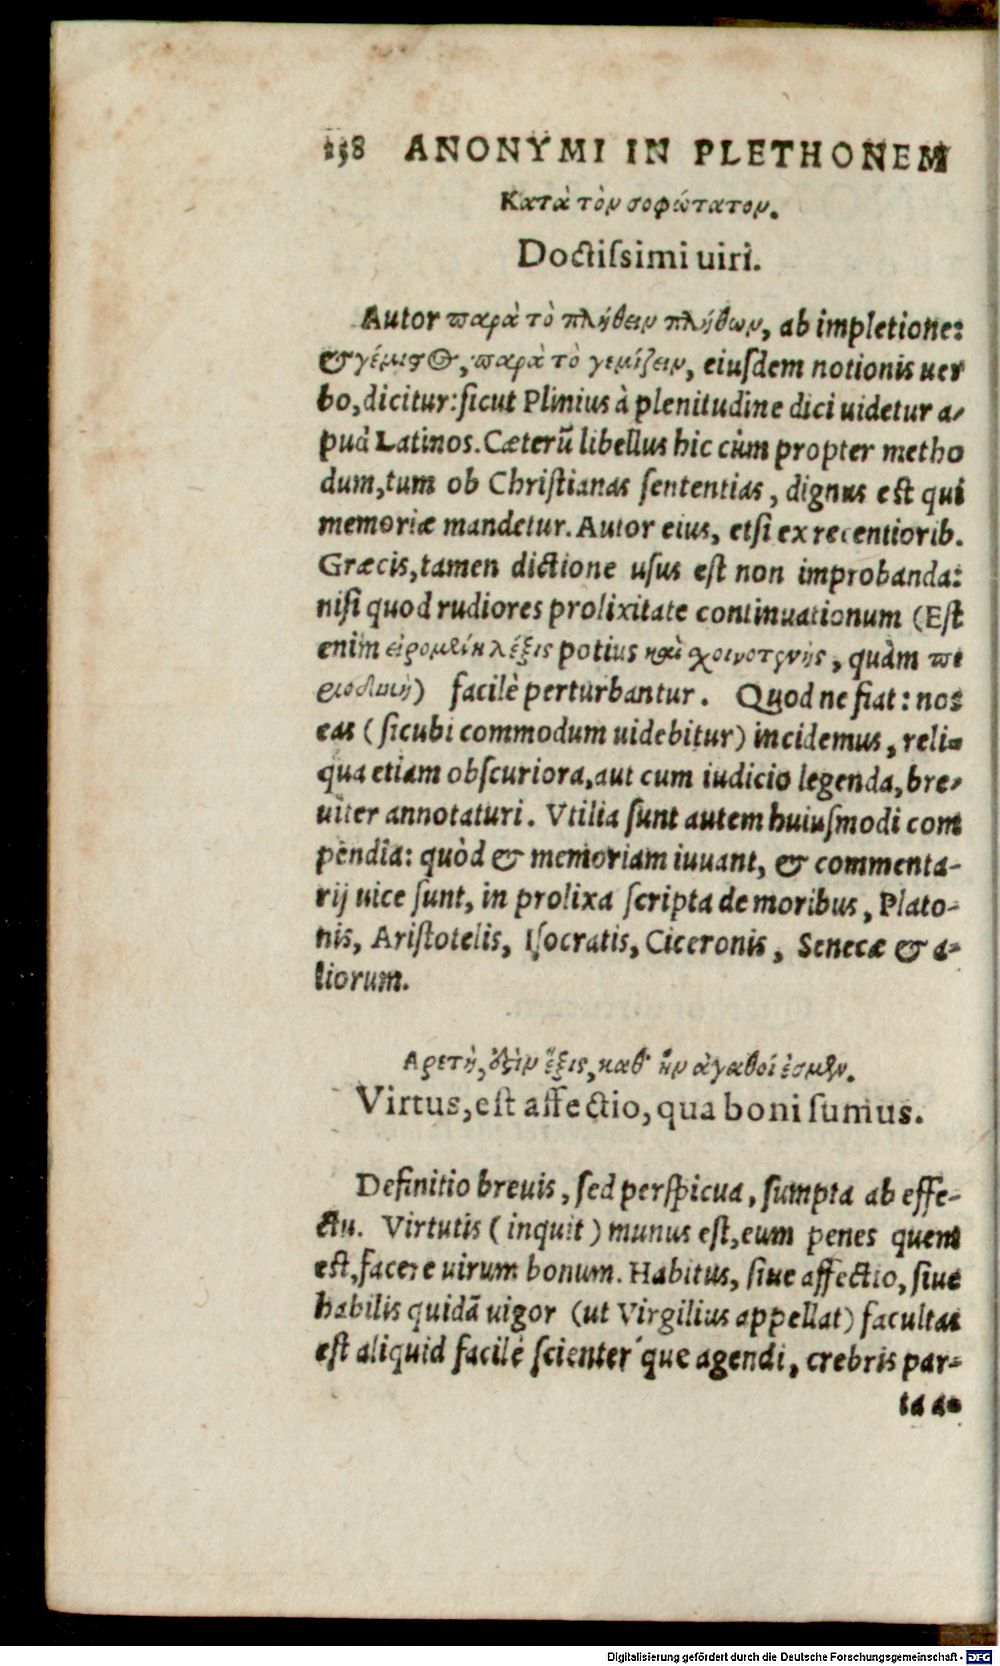 138 ANONYMI IN PLETHONEM
Κατὰ τὸν σοφώτατον.
Doctiſsimi uiri.
Autor παρὰ τὸ πλήθειν πλήθων, ab impletione:
& γέμιστος, παρὰ τὸ γεμίζειν, eiuſdem notionis uer
bo, dicitur: ſicut Plinius à plenitudine dici uidetur a-
pud Latinos. Cæterũ libellus hic cùm propter metho
dum, tum ob Chriſtianas ſententias, dignus eſt qui
memoriæ mandetur. Autor eius, etſi ex recentiorib.
Græcis, tamen dictione uſus eſt non improbanda:
niſi quod rudiores prolixitate continuationum (Eſt
enim εἰρομένη λέξις potius καὶ σχοινοτενὴς, quàm πε
ριοδικὴ) facilè perturbantur. Quod ne fiat: nos
eas (ſicubi commodum uidebitur) incidemus, reli-
qua etiam obſcuriora, aut cum iudicio legenda, bre-
uiter annotaturi. Vtilia ſunt autem huiuſmodi com
pendia: quòd & memoriam iuuant, & commenta-
rij uice ſunt, in prolixa ſcripta de moribus, Plato-
nis, Ariſtotelis, Iſocratis, Ciceronis, Senecæ & a-
liorum.
Αρετὴ, ὅτιν ἕξις, καθ' ἣν ἀγαθοί ἐσμεν.
Virtus, eſt affectio, qua boni ſumus.
Definitio breuis, ſed perſpicua, ſumpta ab effe-
ctu. Virtutis (inquit) munus eſt, eum penes quem
eſt, facere uirum bonum. Habitus, ſiue affectio, ſiue
habilis quidã uigor (ut Virgilius appellat) facultas
eſt aliquid facilè ſcienter que agendi, crebris par-
ta a-
Digitalisierung gefördert durch die Deutsche Forschungsgemeinschaft - DFG